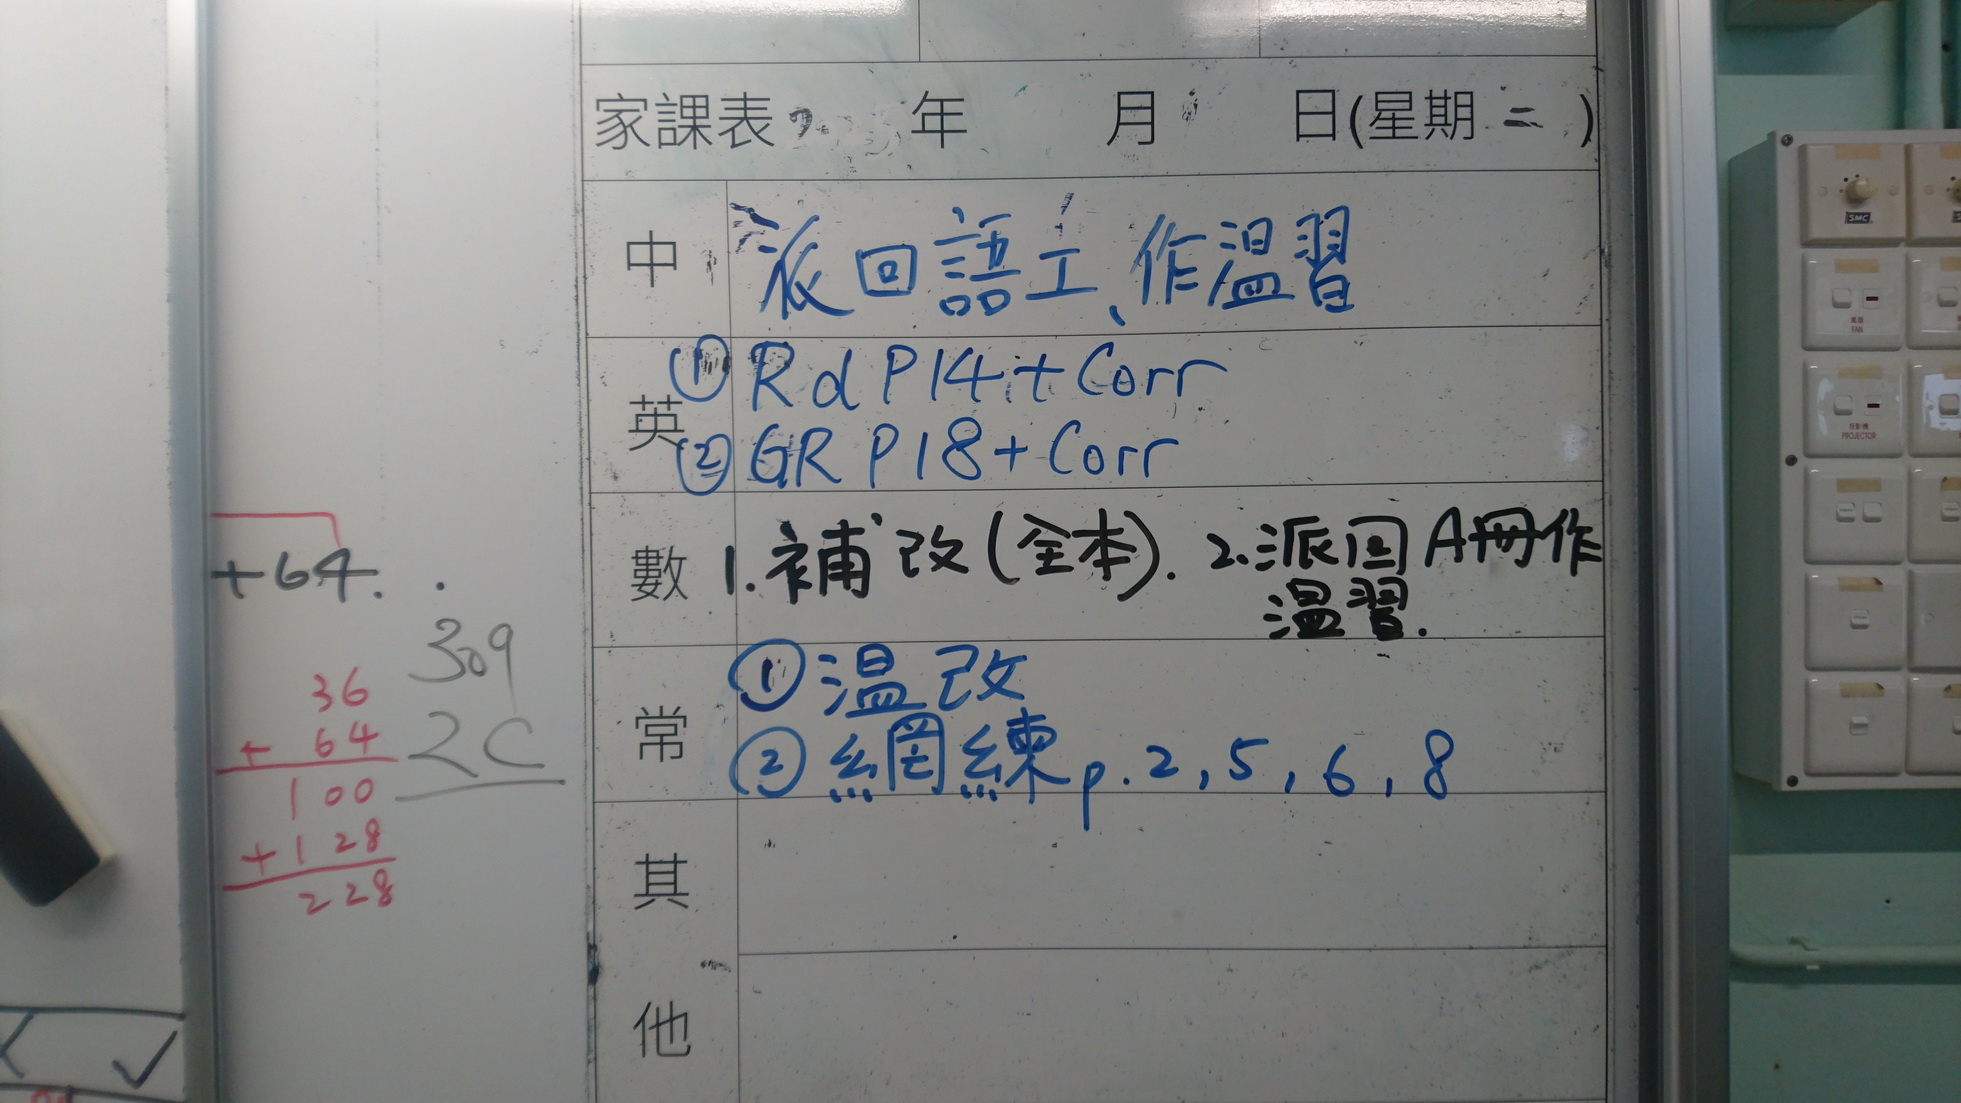 家課表 年 月 日(星期 二 )
中 派回語工、作溫習
英 ① Rd P14 + Corr
② GR P18 + Corr
數 1. 補改(全本). 2. 派回A冊作
溫習.
常 ① 溫改
② 網練 p. 2, 5, 6, 8
其
他
+64.
309
20
36
+ 64
100
+ 128
228
SMC
風扇
FAN
投影機
PROJECTOR